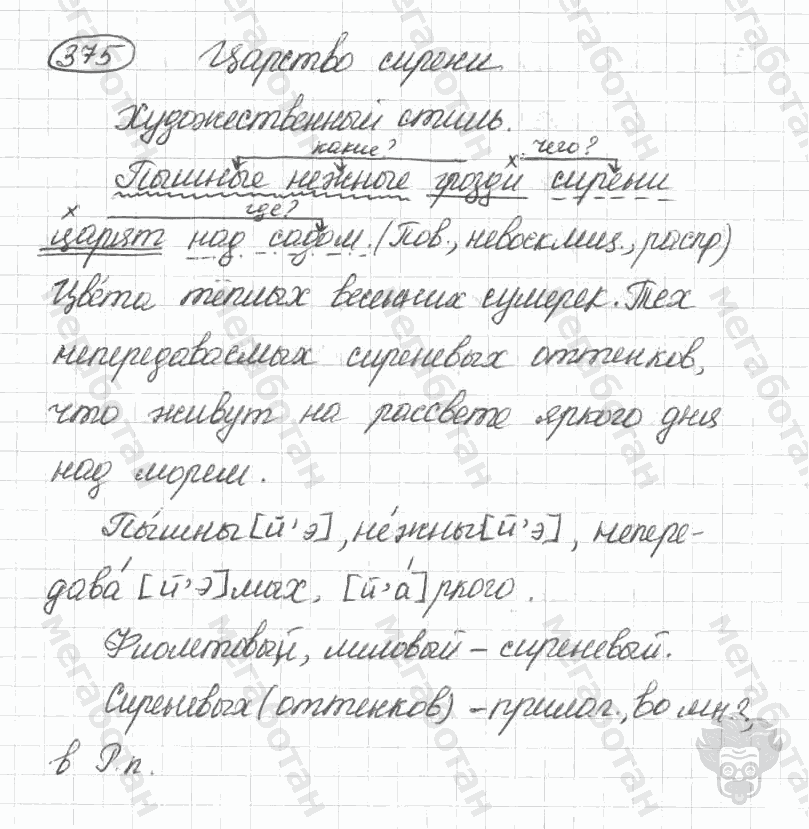 375 Царство сирени
Художественный стиль.
какие? х чего?
Пышные нежные грозди сирени
х где?
царят над садом. (Пов., невосклиц., распр)
Цвета тёплых весенних сумерек. Тех
непередаваемых сиреневых оттенков,
что живут на рассвете яркого дня
над морем.
Пы́шны[й'э], не́жны[й'э], непере-
дава́[й'э]мах, [й'а́]ркого.
Фиолетовый, лиловый – сиреневый.
Сиреневых (оттенков) – прилаг., во мн.ч,
в Р.п.
мегаботан